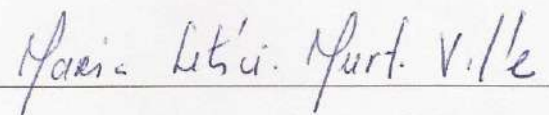 Maria Letíci. Murt. V.lle